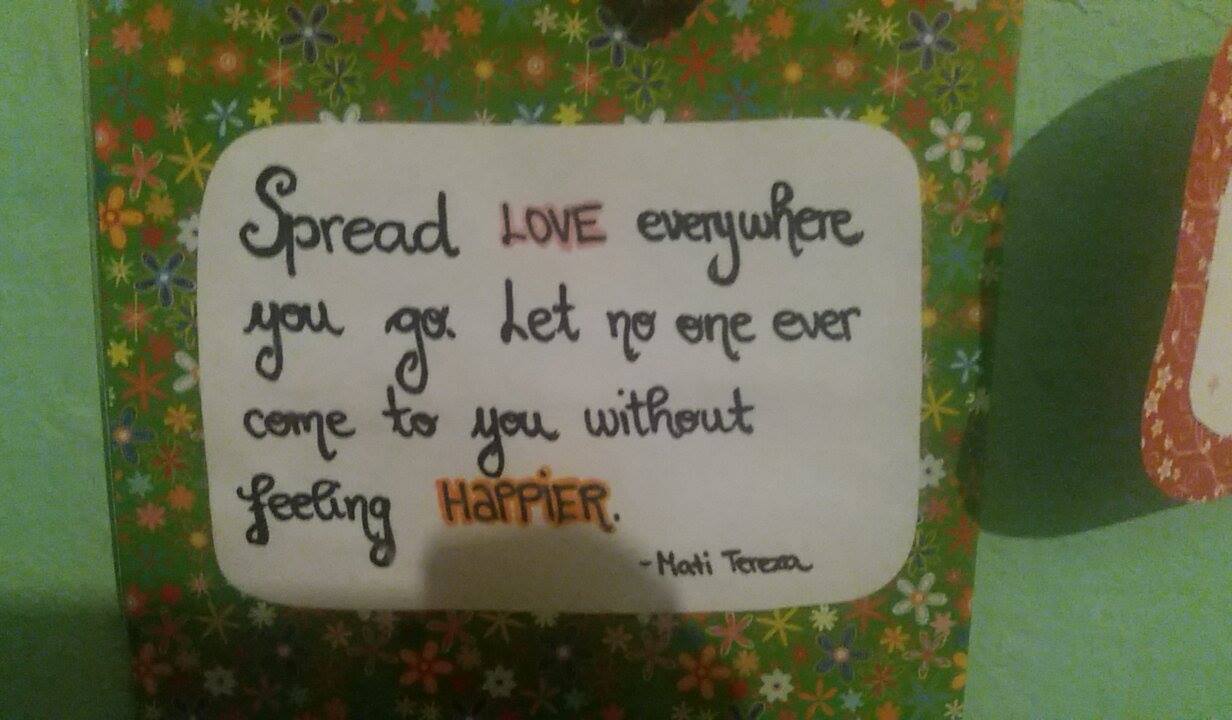 Spread LOVE everywhere
you go. Let no one ever
come to you without
feeling HaPPiER.
-Mati Tereza